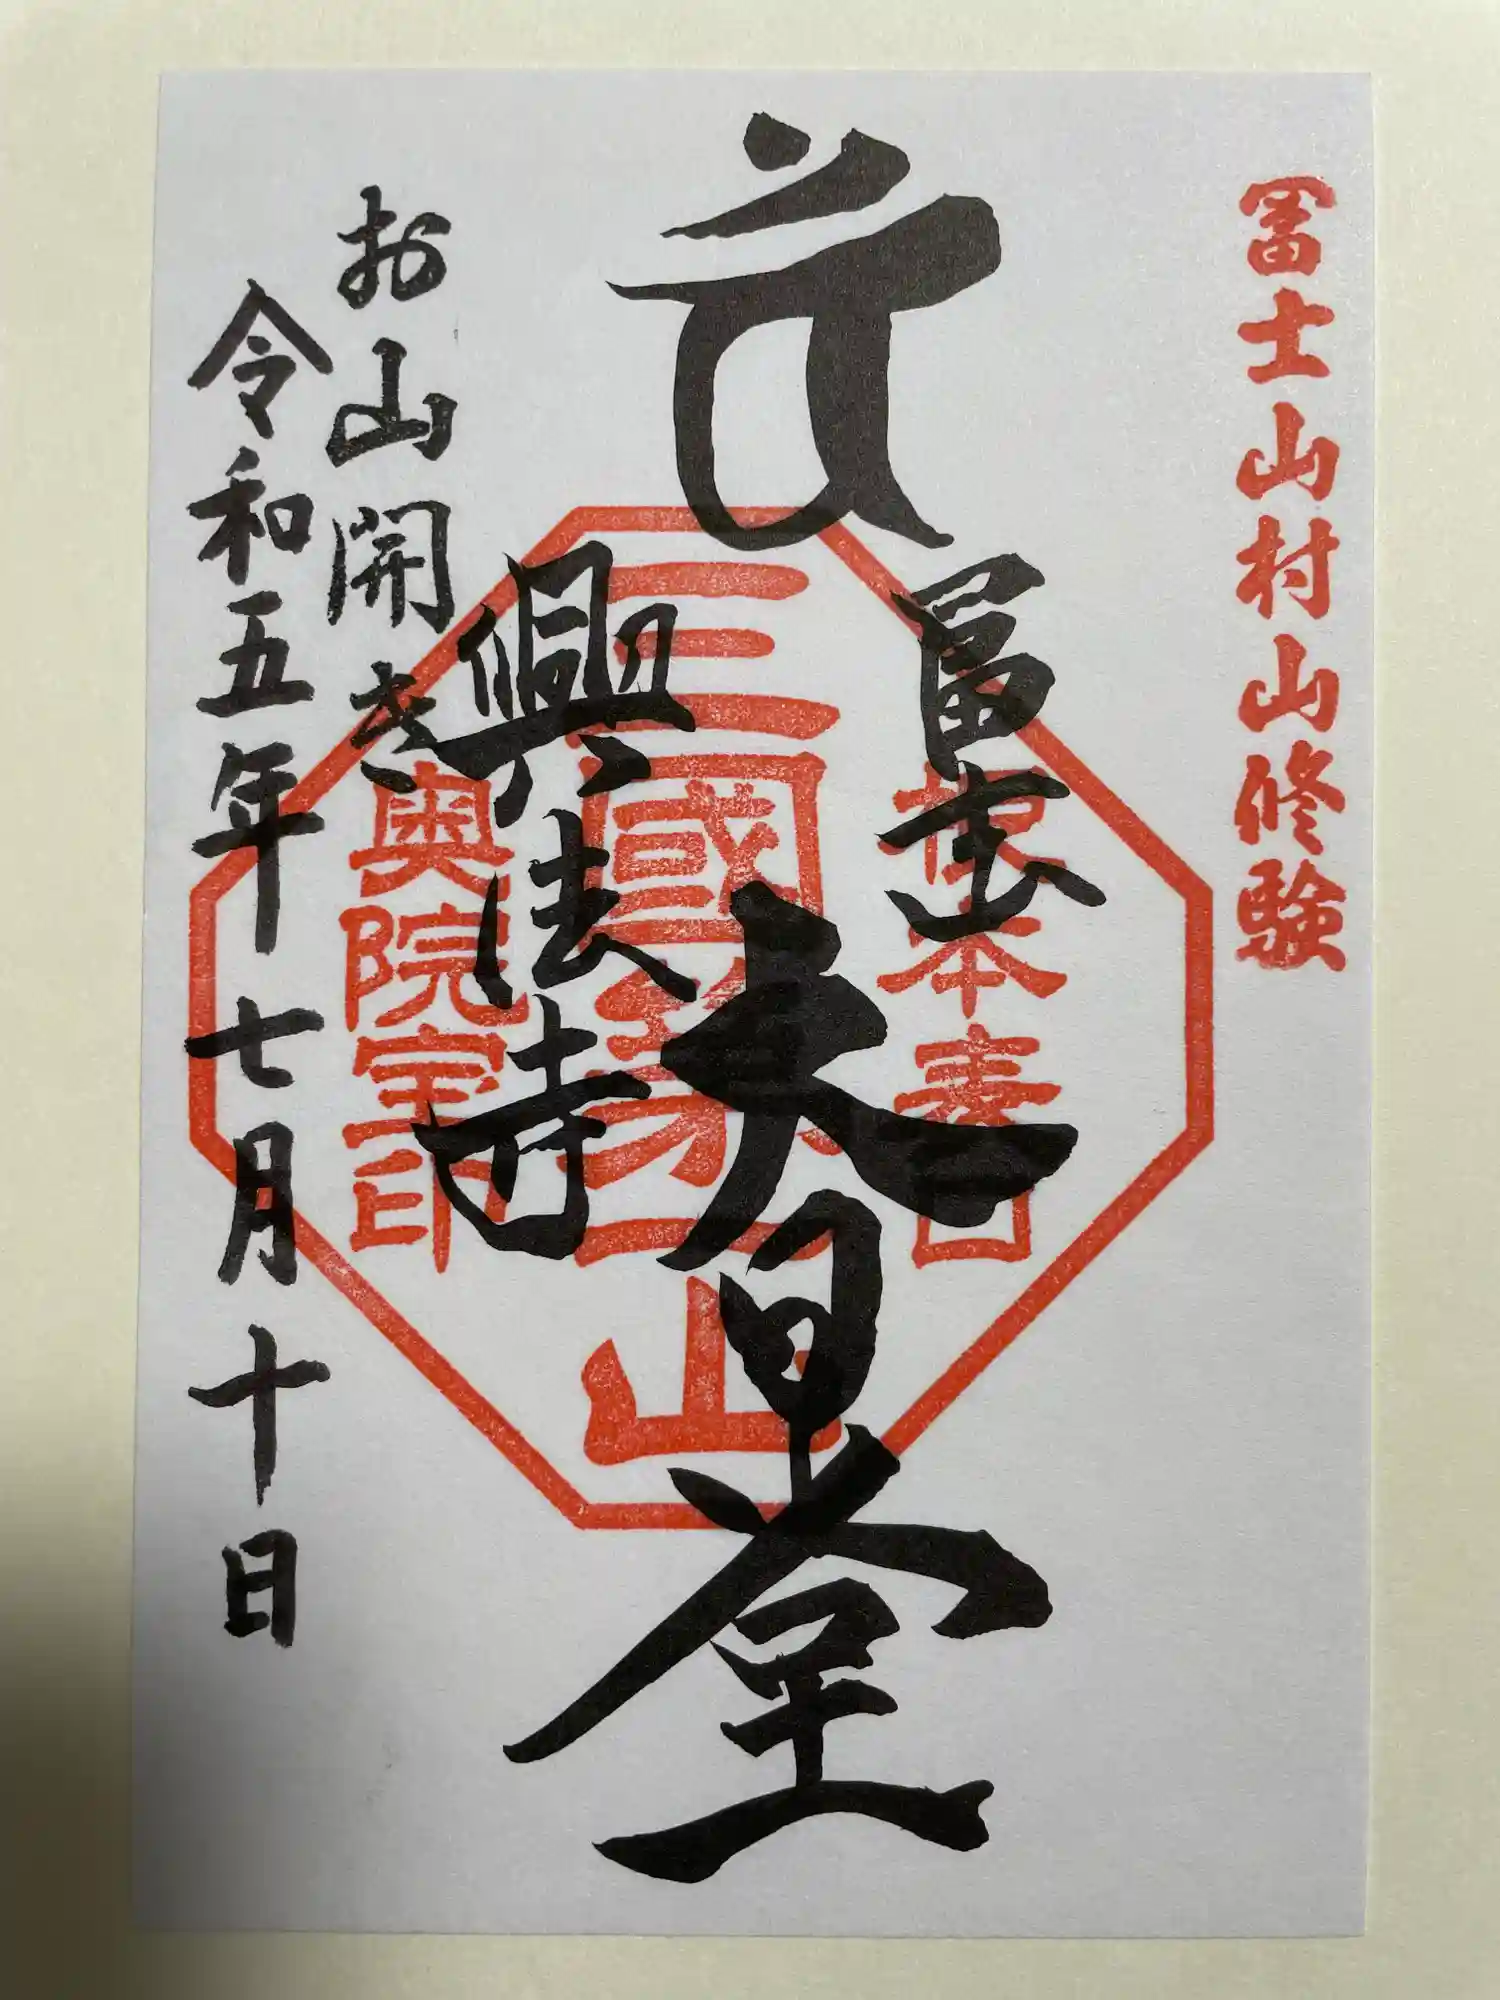 冨士山村山修験
冨士
大日堂
興法寺
お山開き
令和五年七月十日
三國第一山
奥院宝印